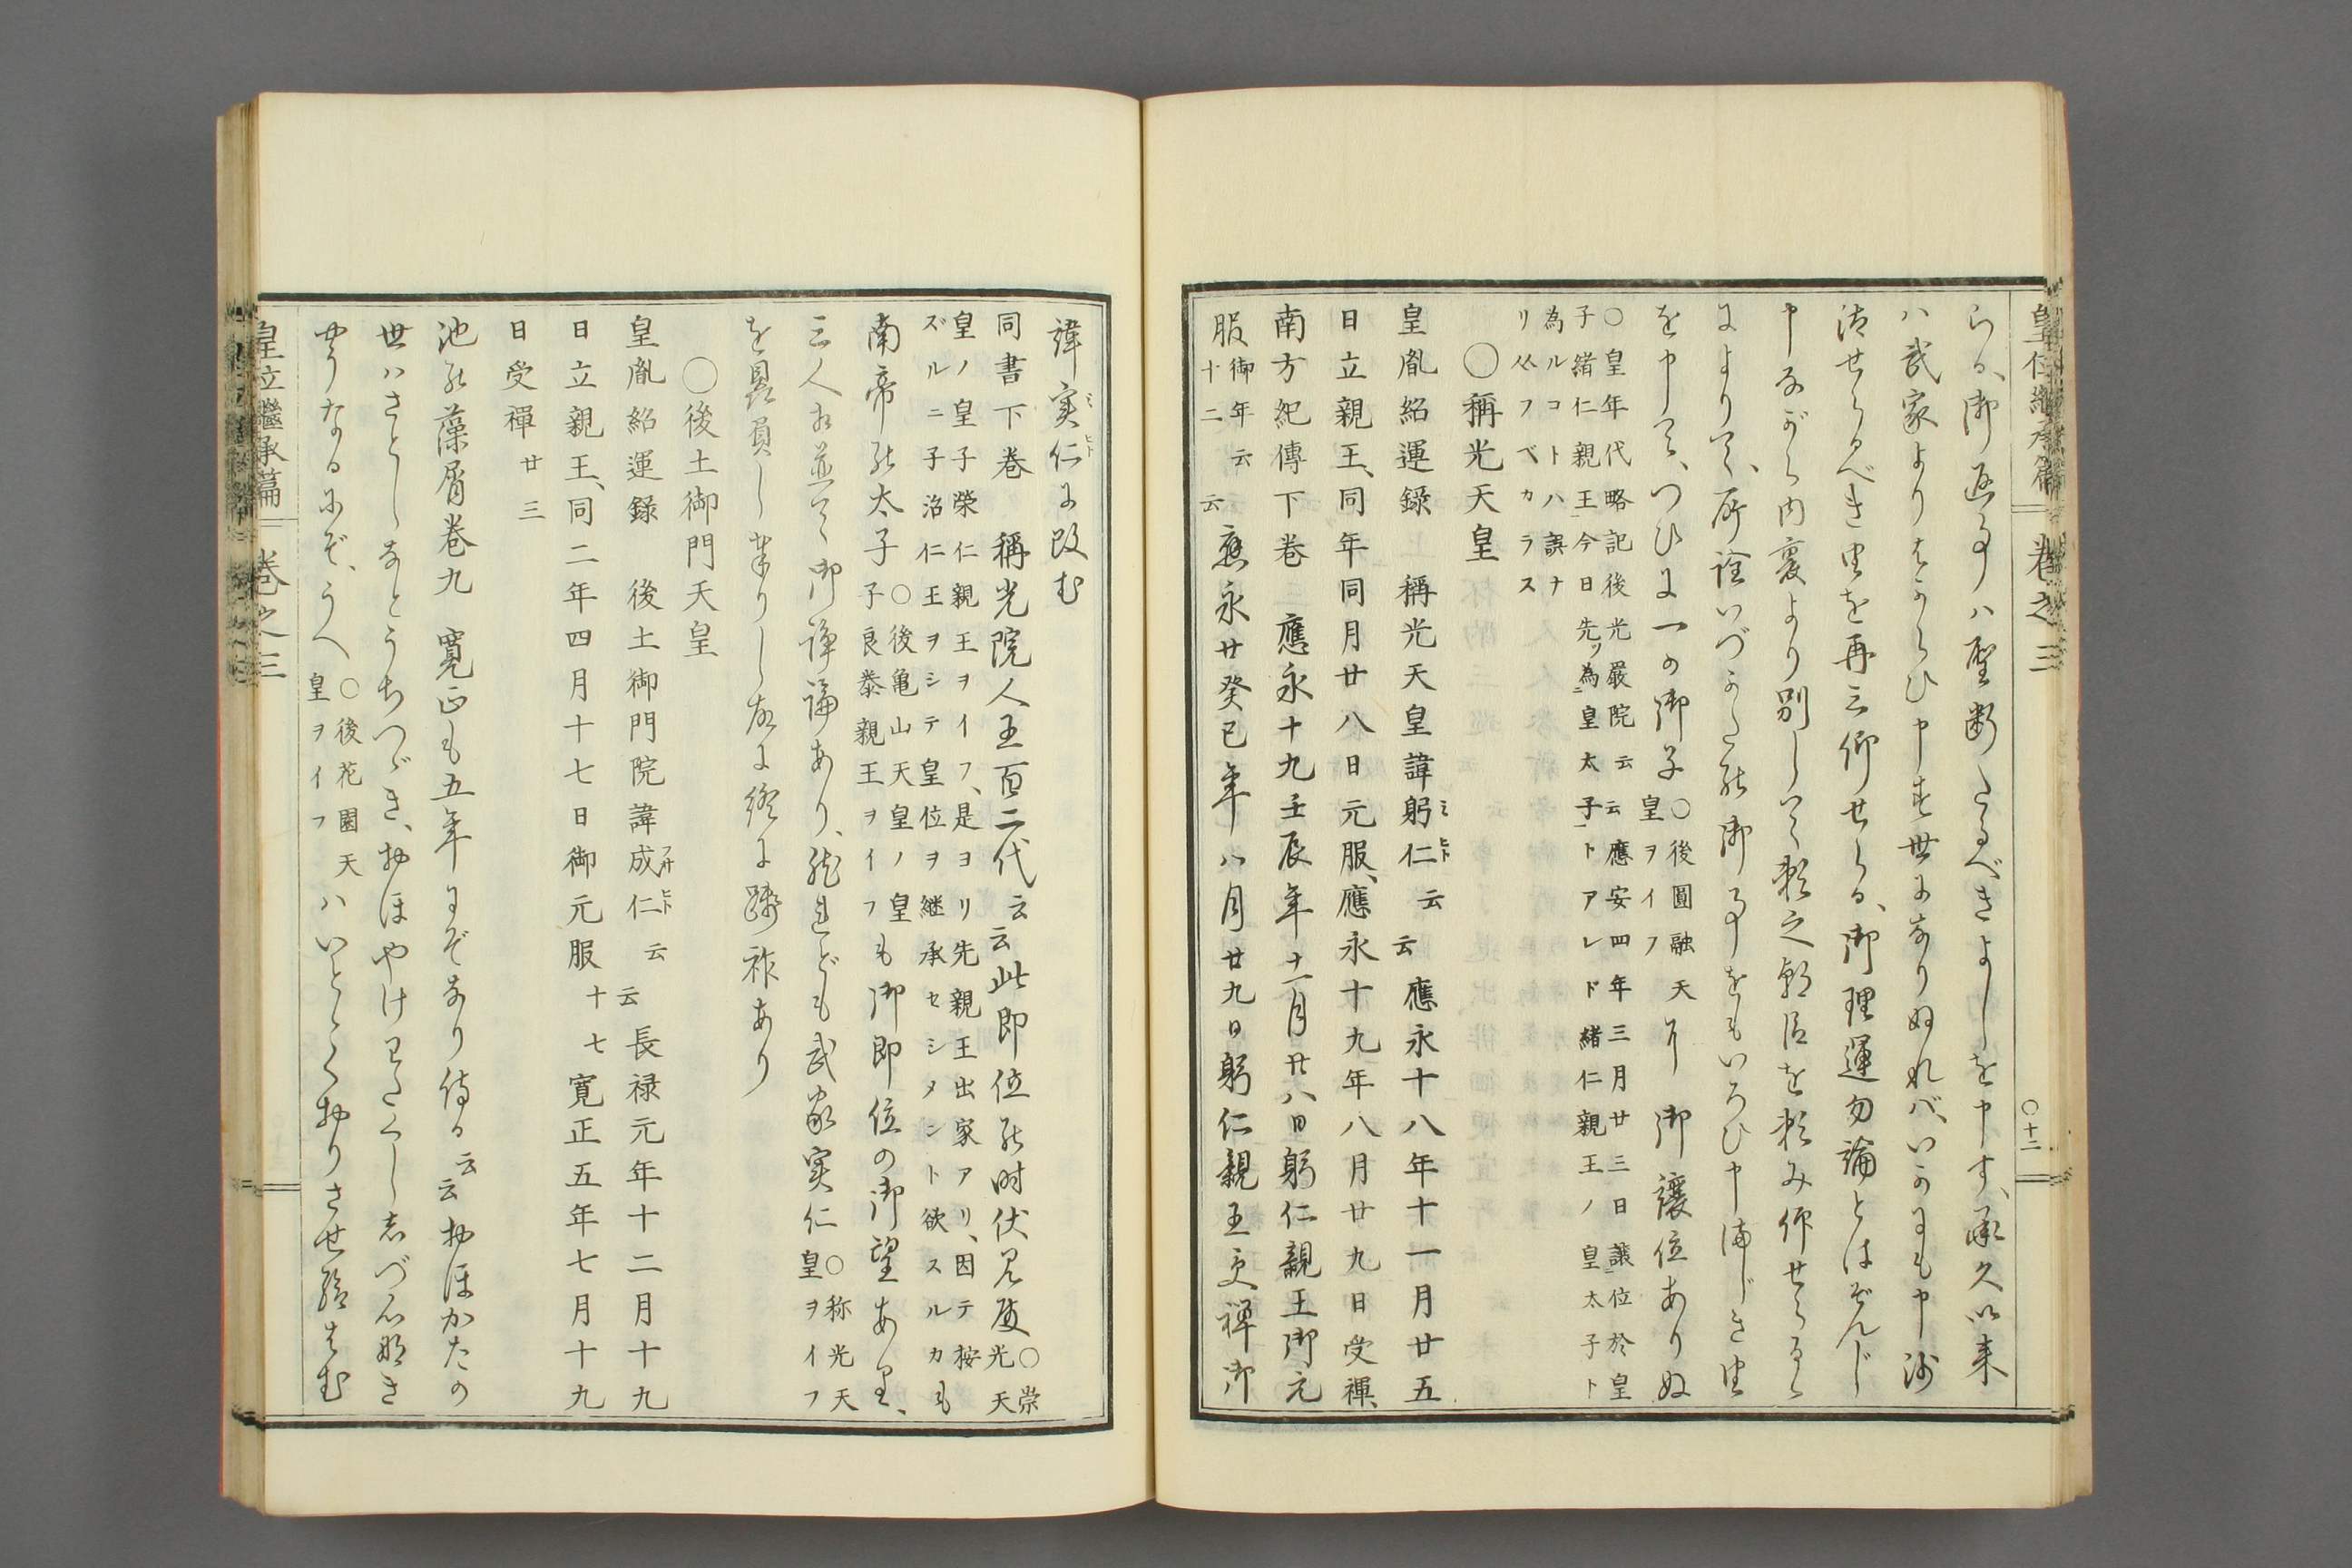 皇位繼承篇 卷之三 〇十二
らる、御返事ハ聖断たるべきよしを申す、承久以来
ハ武家よりはからひ申す世になりぬれバ、いかにも申沙
汰せらるべき由を再三仰せらる、御理運勿論とはぞんじ
申ながら内裏より別して頼之朝臣を頼み仰せらるゝ
によりて、所詮いづかたの御事をもいろひ申まじき由
を申して、つひに一の御子〇後圓融天皇ヲイフ 御讓位ありぬ
〇皇年代略記後光嚴院云云應安四年三月廿三日讓位於皇
子緒仁親王今日先ツ為皇太子トアレド緒仁親王ノ皇太子ト
為ルコトハ誤ナ
リ从フベカラス
〇稱光天皇
皇胤紹運錄 稱光天皇諱躬仁云云 應永十八年十一月廿五
日立親王、同年同月廿八日元服、應永十九年八月廿九日受禪、
南方紀傳下卷 應永十九壬辰年十一月廿八日躬仁親王御元
服御年云云十二 應永廿癸巳年八月廿九日躬仁親王受禪御
諱実仁に改む
同書下卷 稱光院人王百二代云云此即位の时伏見殿〇崇光天
皇ノ皇子榮仁親王ヲイフ、是ヨリ先親王出家アリ、因テ按
ズルニ子治仁王ヲシテ皇位ヲ継承セシメント欲スルカも
南帝の太子〇後亀山天皇ノ皇子良泰親王ヲイフも御即位の御望あり、
三人相並て御諍論あり、然れども武家実仁〇称光天皇ヲイフ
を贔負し奉りし故に終に踐祚あり
〇後土御門天皇
皇胤紹運録 後土御門院諱成仁云云長禄元年十二月十九
日立親王、同二年四月十七日御元服十七寛正五年七月十九
日受禪廿三
池の藻屑巻九 寛正も五年にぞなり侍る云云おほかたの
世ハさとしなとうちつゞき、おほやけわたくししづ心なき
やうなるにぞ、うへ〇後花園天皇ヲイフハいととくおりさせ給はむ
皇位繼承篇 卷之三